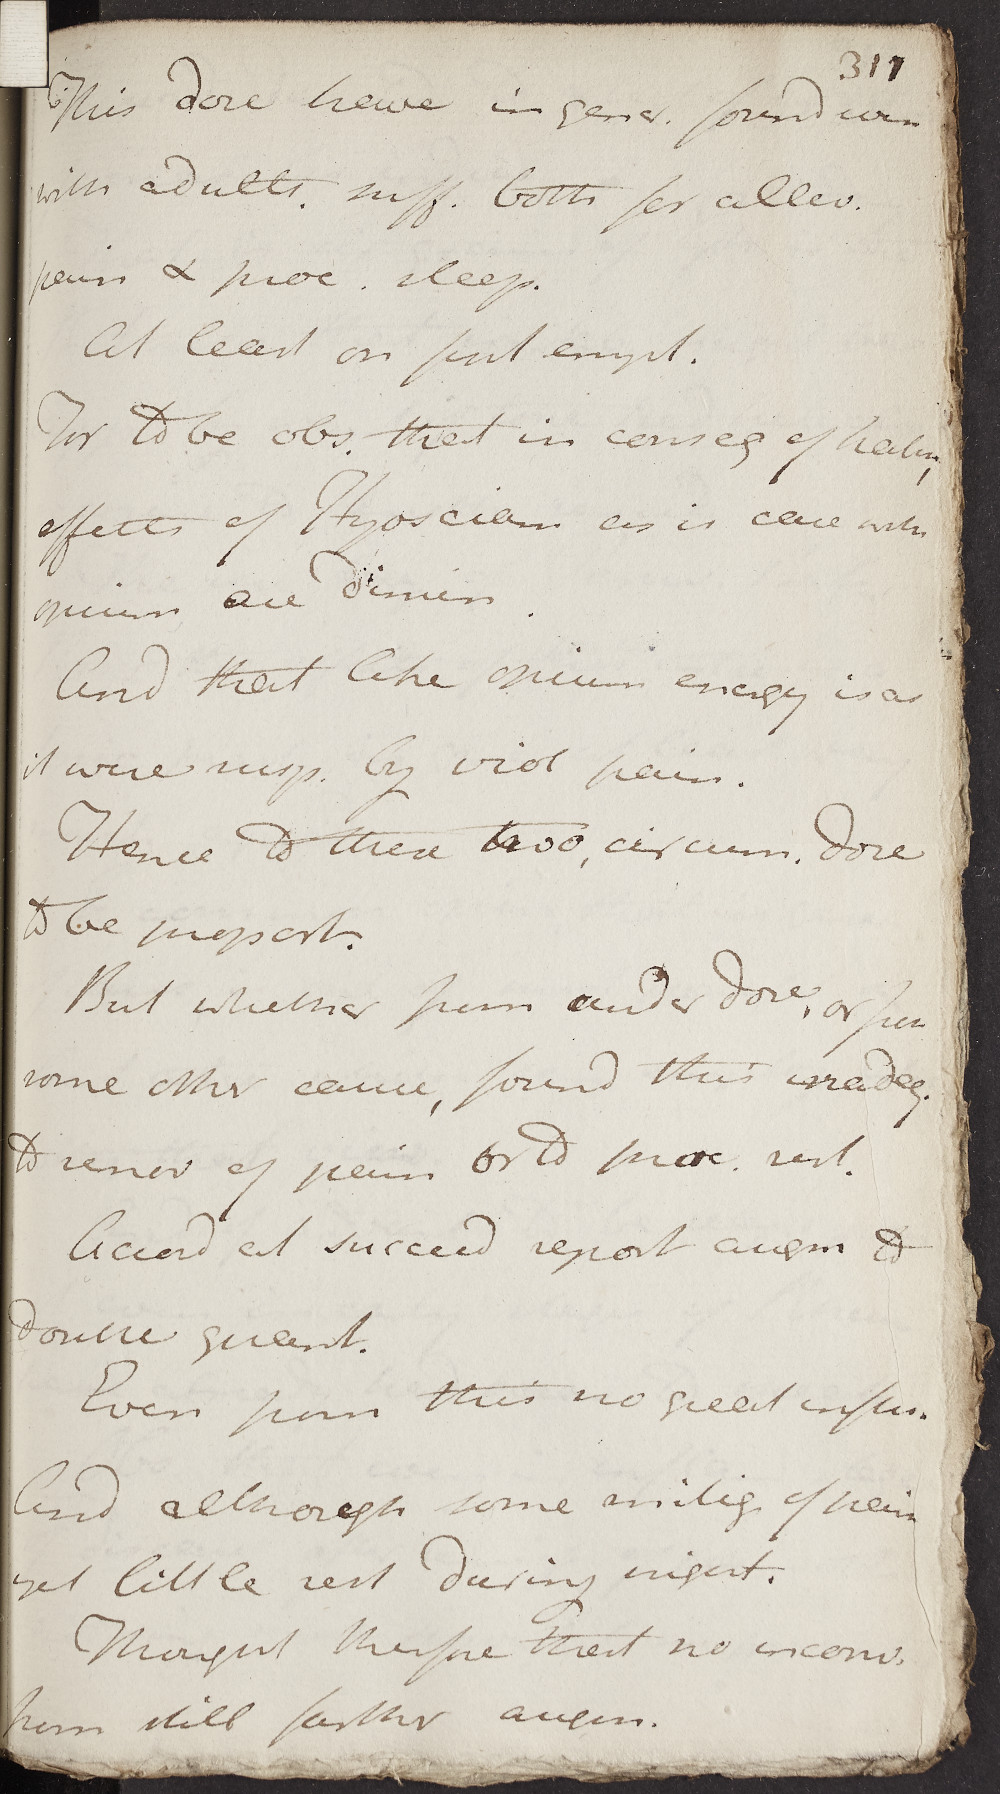 317
This dose have in gener. found even
with adults. suff. both for allev.
pain & proc. sleep.
At least on first empl.
For to be obs. that in conseq of habit,
effects of Hyosciam as is case with
opium are dimin.
And that like opium energy is as
it were resp. by viol pain.
Hence to these two, circum. dose
to be proport.
But whether from under dose, or from
some other cause, found this inadeq.
to remov of pain or to proc. rest.
Accord at succeed report augm to
double quant.
Even from this no great influ.
And although some mitig of pain
yet little rest during night.
Thought therfore that no inconv.
from still farther augm.